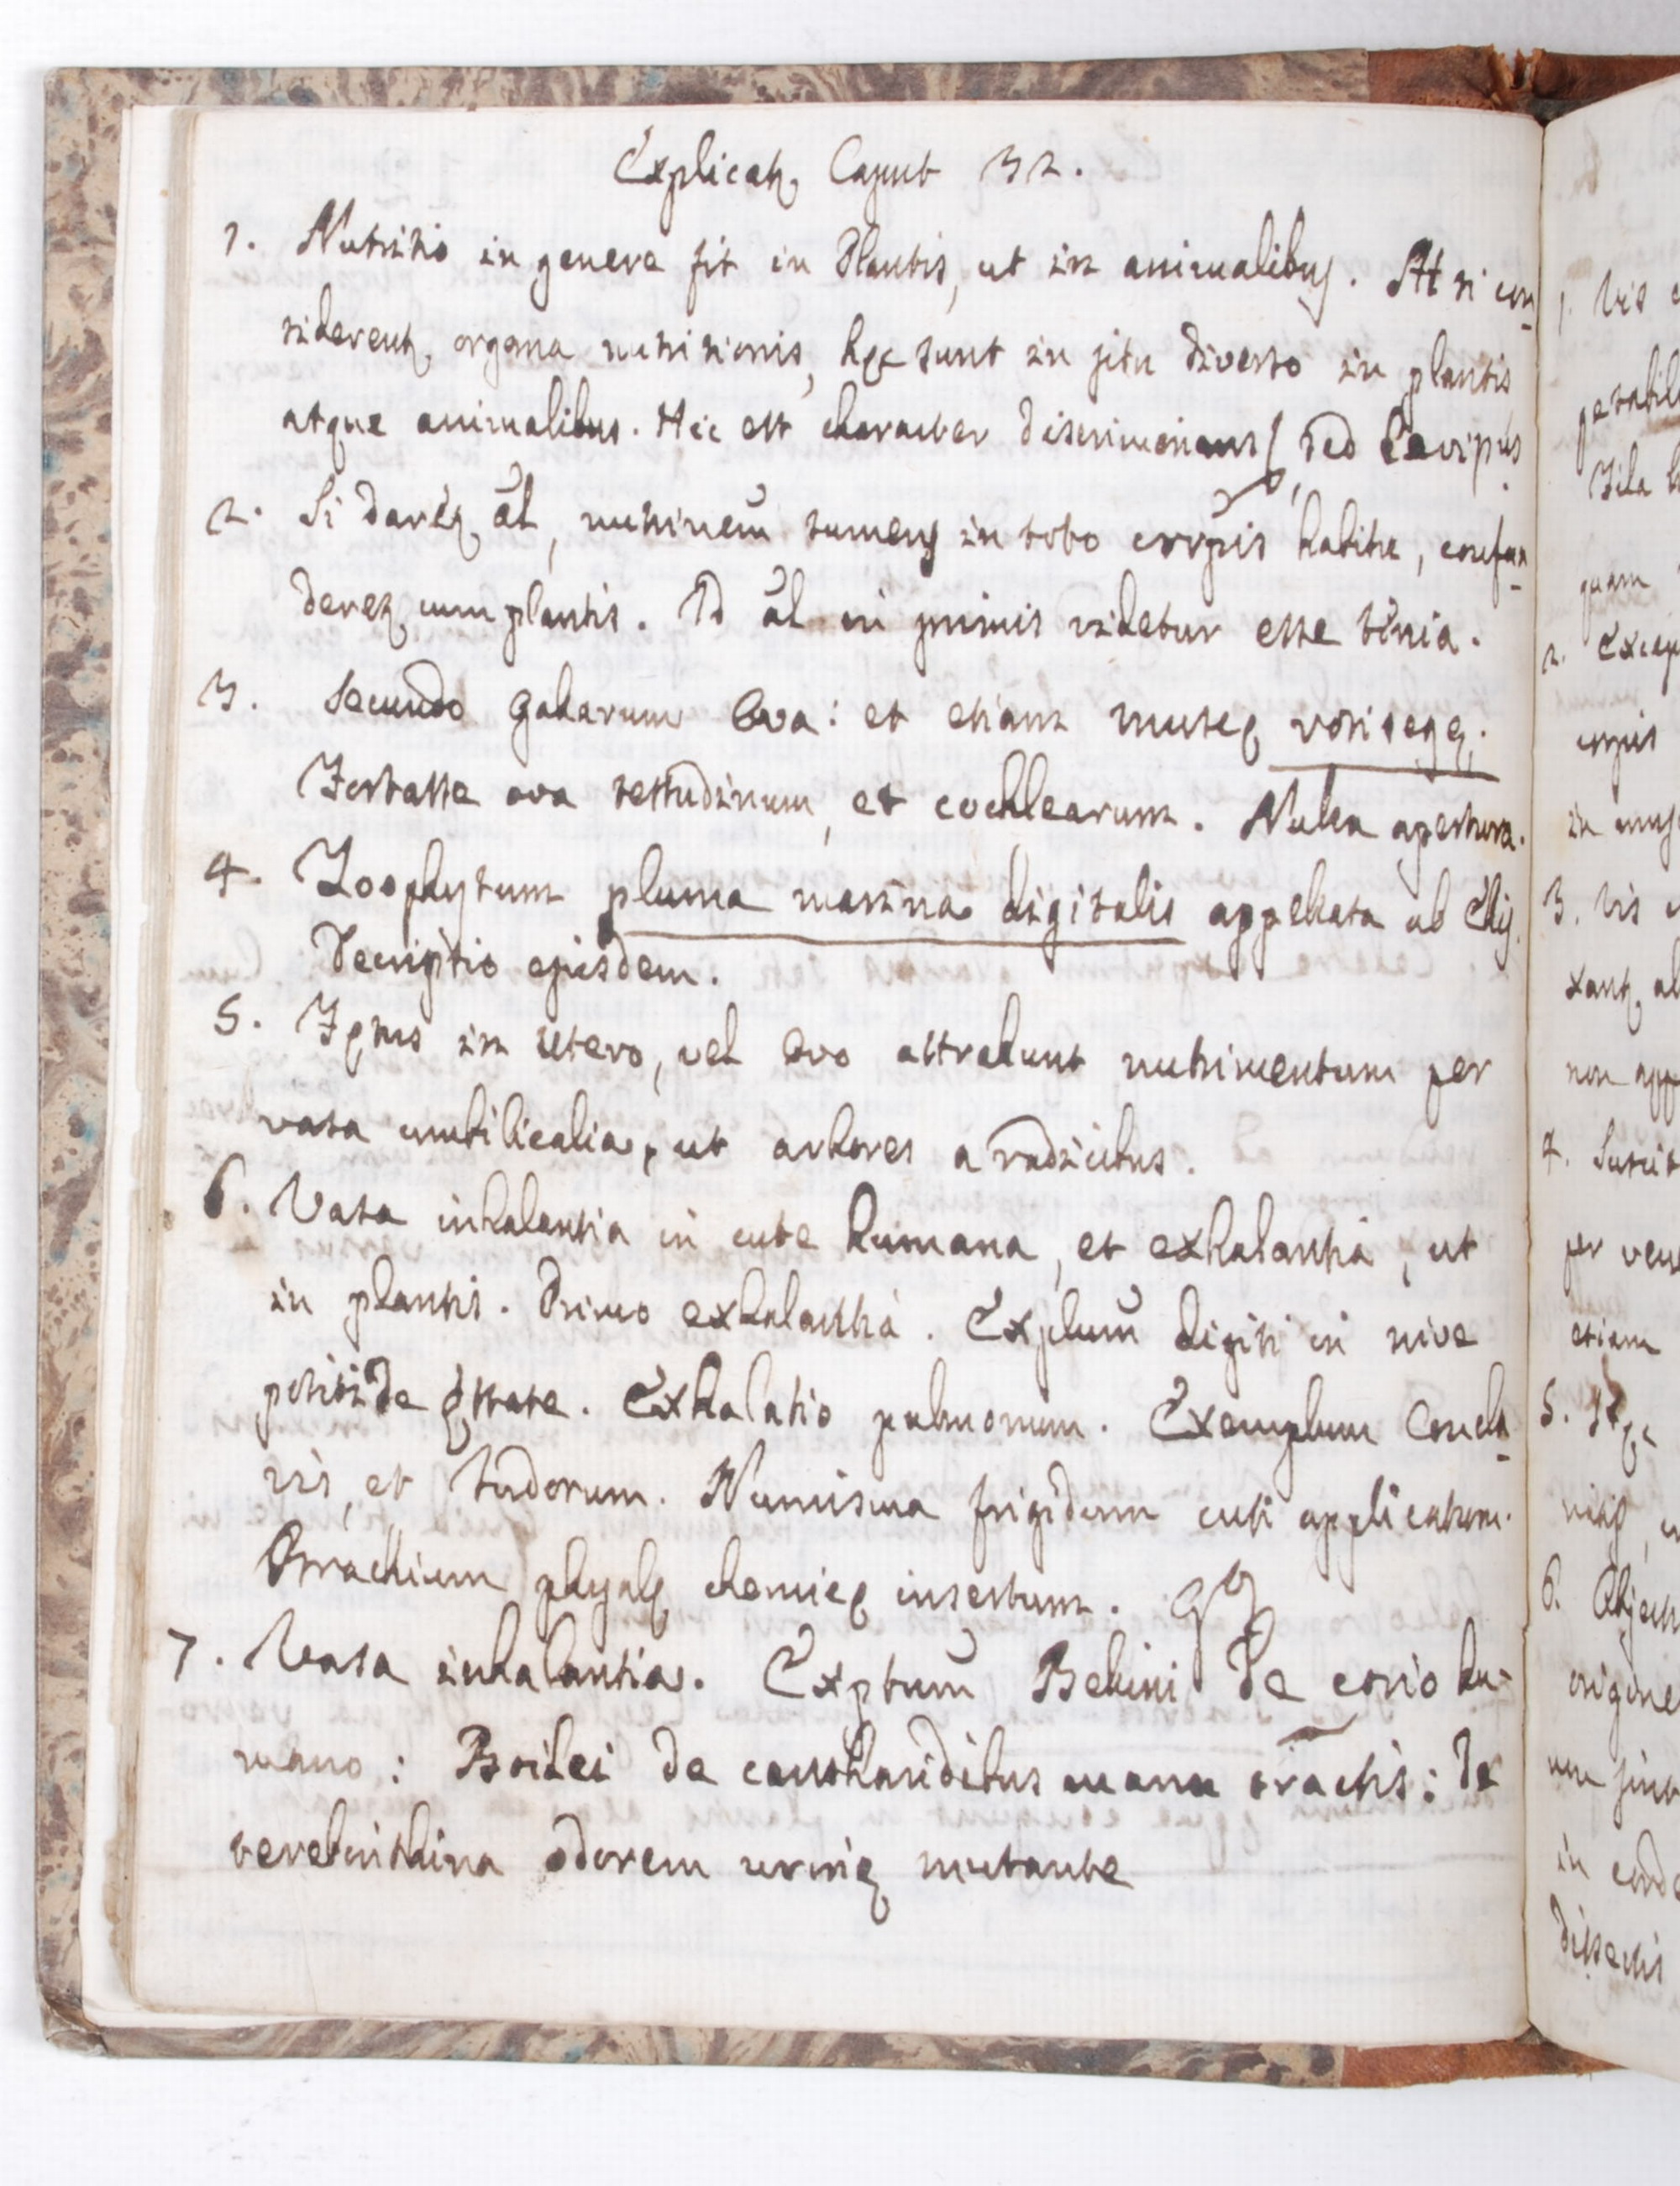 Explicatꝗ Caput 32.
1. Nutritio in genere fit in Plantis, ut in animalibuꝯ. At si con-
siderentꝗ organa nutritionis, hęc sunt in situ diverso in plantis
atque animalibus. Hic est character discriminans, sed
2. Si darétꝗ ā̆l, nutrimeū̆ sumens in toto corpis habitu, confun-
deretꝗ cum plantis. Id ā̆l in primis videtur esse tęnia.
3. Secundo galarum Ova: et etiam muscę rosisegę.
Fortasse ova testudinum, et cochlearum. Nulla apertura.
4. Zoophytum pluma marina digitalis appellata ab Ellis.
Descriptio ejusdem.
5. Fętus in utero, vel ovo attrahunt nutrimentum per
vasa umbilicalia, ut arbores a radicibus.
6. Vasa inhalantia in cute humana, et exhalantia, ut
in plantis. Primo exhalantia. Explum̆ digiti in nive
positi de ęstate. Exhalatio pulmonum. Exemplum Concla-
vis, et sudorum. Numisma frigidum cuti applicatum.
Brachium phyalę chemicę insertum.
7. Vasa inhalantia. Exptum̆ Bellini de corio hu-
mano: Boilei de cantharidibus manu tractis: de
terebinthina odorem urinę mutante
1. Vis
quam
2.
in
3. Vis
xantꝗ
non
4.
per
etiam
5.
6.
origine
in
dissectis